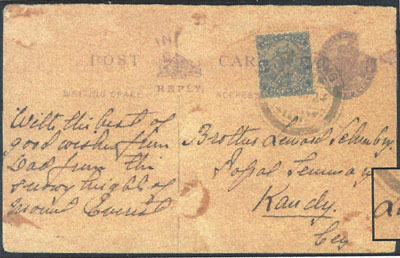 POST CARD
WRITING SPACE REPLY ADDRESS
With the best of
good wishes from
Dad from the
snowy heights of
Mount Everest
Brother
Papal Seminary
Kandy
Cey